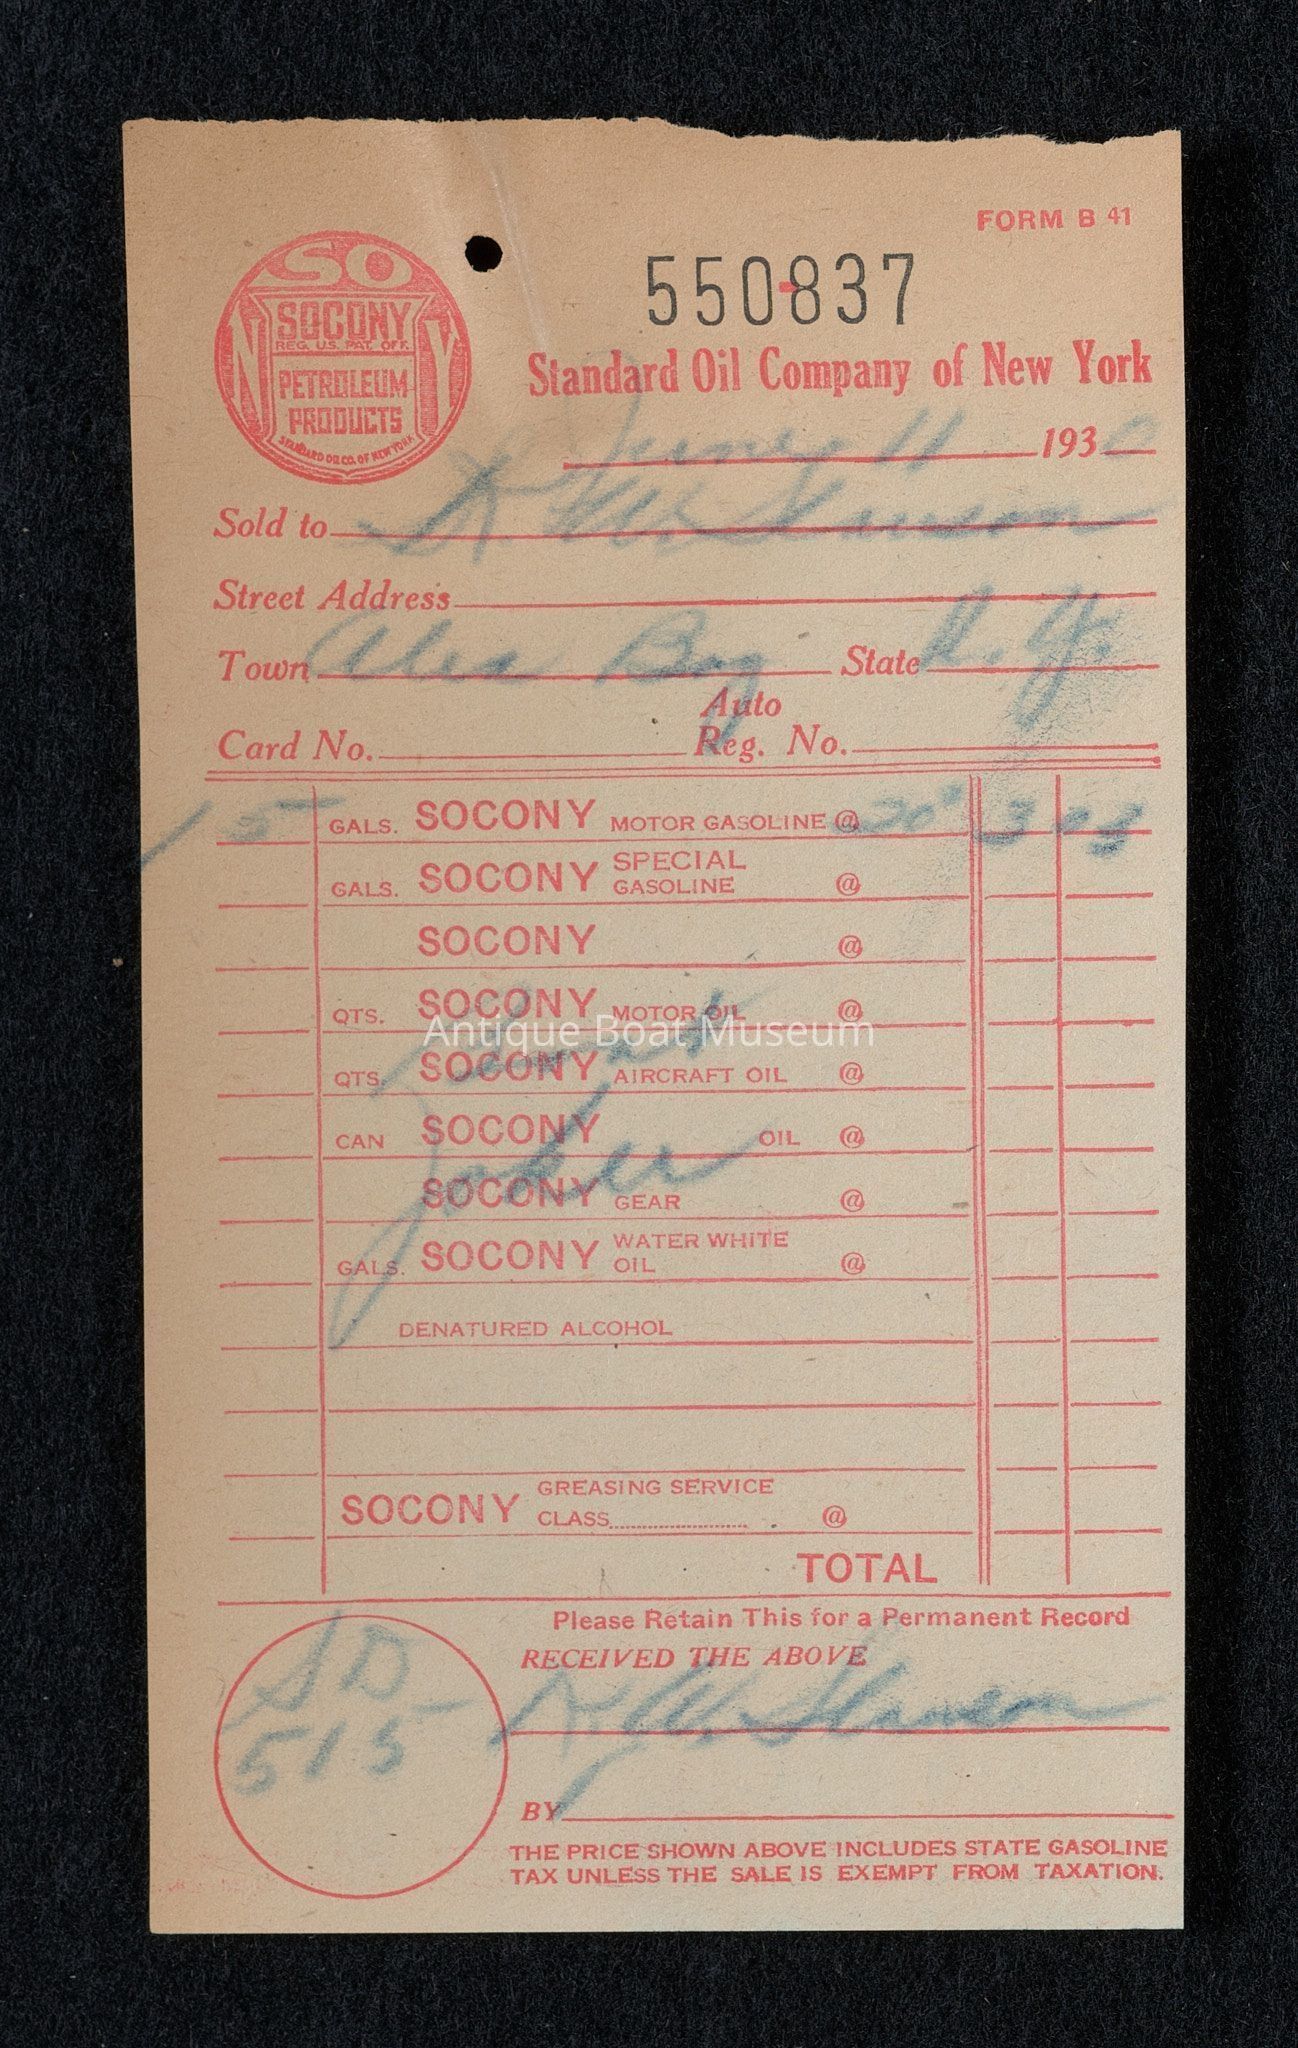 FORM B 41
550837
SO
NY
SOCONY
REG. U.S. PAT. OFF.
PETROLEUM
PRODUCTS
STANDARD OIL CO. OF NEW YORK
Standard Oil Company of New York
June 11 1930
Sold to
Street Address
Town Alex Bay State N.Y.
Auto
Card No. Reg. No.
15 GALS. SOCONY MOTOR GASOLINE @ 20² 3 03
GALS. SOCONY SPECIAL GASOLINE @
SOCONY @
QTS. SOCONY MOTOR OIL @
Antique Boat Museum
QTS. SOCONY AIRCRAFT OIL @
Boat
CAN SOCONY OIL @
Joker
SOCONY GEAR @
GALS. SOCONY WATER WHITE OIL @
DENATURED ALCOHOL
SOCONY GREASING SERVICE
CLASS @
TOTAL
Please Retain This for a Permanent Record
RECEIVED THE ABOVE
SD
515
BY
THE PRICE SHOWN ABOVE INCLUDES STATE GASOLINE
TAX UNLESS THE SALE IS EXEMPT FROM TAXATION.